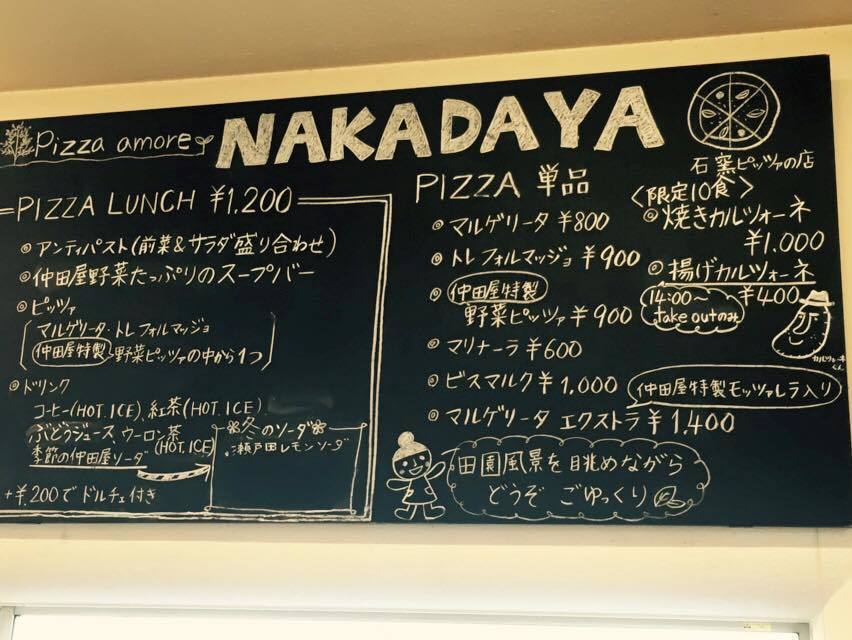 Pizza amore NAKADAYA
石窯ピッツァの店
PIZZA LUNCH ¥1.200
◎アンティパスト(前菜&サラダ盛り合わせ)
◎仲田屋野菜たっぷりのスープバー
◎ピッツァ
マルゲリータ・トレフォルマッジョ
仲田屋特製 野菜ピッツァの中から1つ
◎ドリンク
コーヒー(HOT.ICE).紅茶(HOT.ICE)
ぶどうジュース.ウーロン茶(HOT.ICE)
季節の仲田屋ソーダ
冬のソーダ
・瀬戸田レモンソーダ
+¥.200でドルチェ付き
PIZZA 単品
◎マルゲリータ ¥800
◎トレフォルマッジョ ¥900
◎仲田屋特製
野菜ピッツァ ¥900
◎マリナーラ ¥600
◎ビスマルク ¥1.000
◎マルゲリータ エクストラ ¥1.400
仲田屋特製モッツァレラ入り
<限定10食>
◎焼きカルツォーネ
¥1.000
◎揚げカルツォーネ
¥400
14:00〜
take outのみ
カルツォーネくん
田園風景を眺めながら
どうぞ ごゆっくり